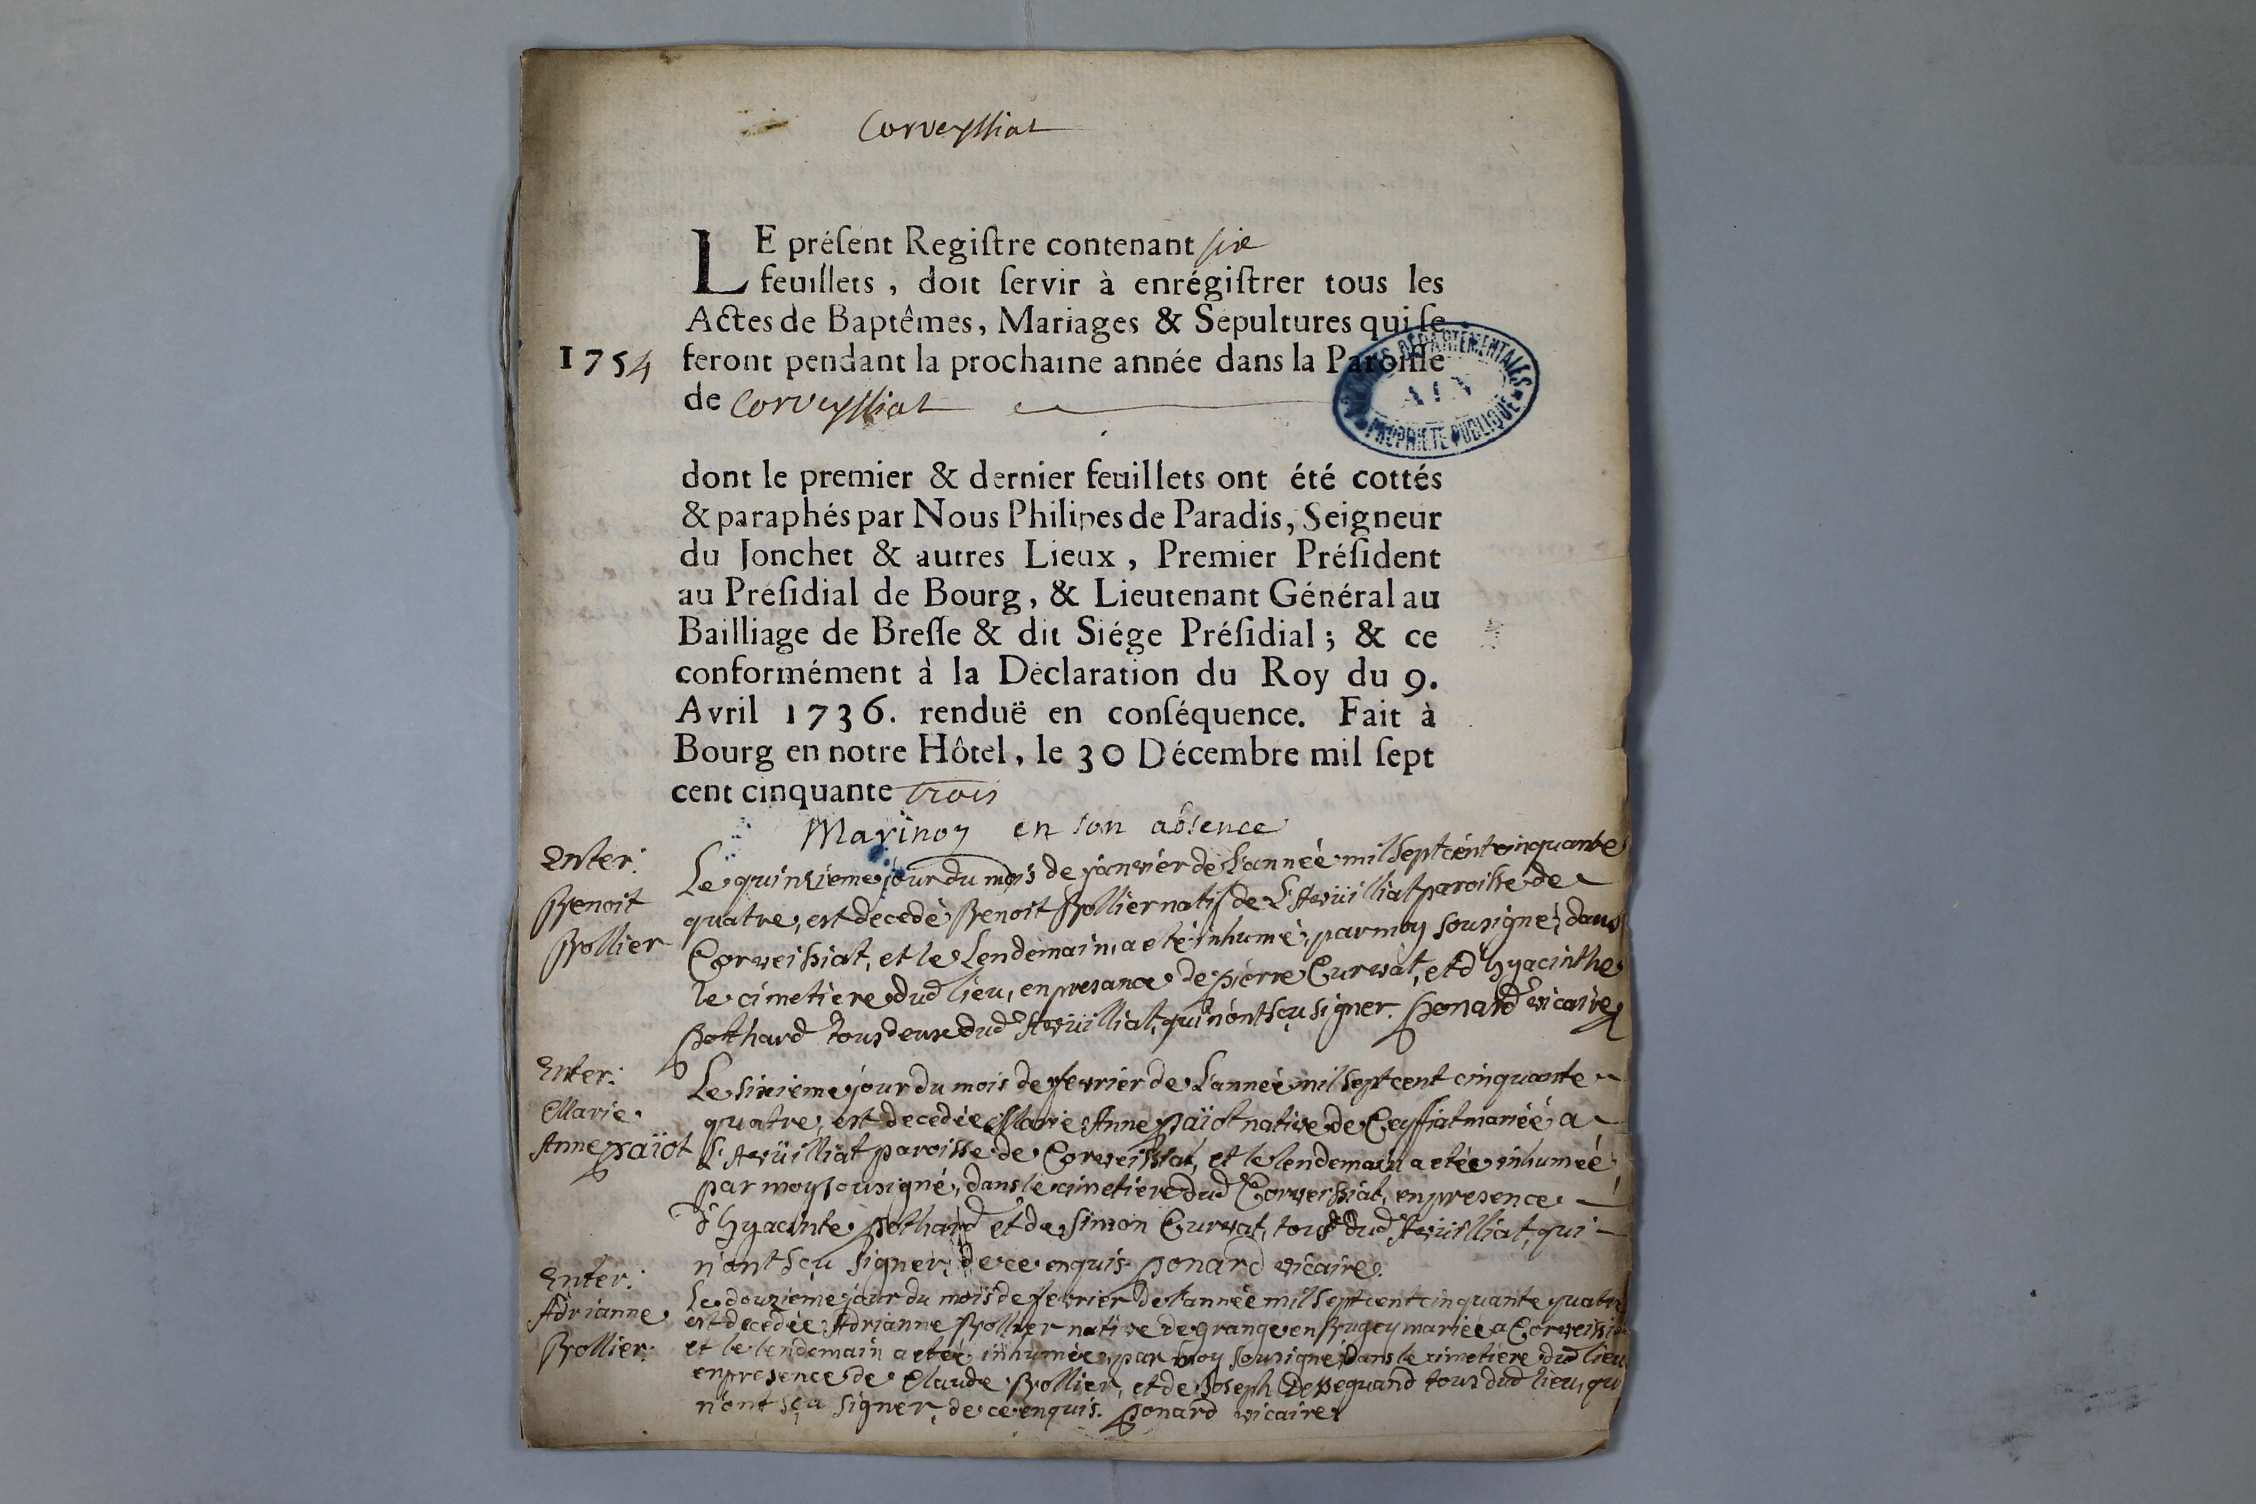 Corveyssiat
LE préſent Regiſtre contenant six
feuillets, doit ſervir à enrégiſtrer tous les
Actes de Baptêmes, Mariages & Sepultures qui ſe
1754 feront pendant la prochaine année dans la Paroiſſe
de Corveyssiat
ARCHIVES DÉPARTEMENTALES
AIN
PROPRIÉTÉ PUBLIQUE
dont le premier & dernier feuillets ont été cottés
& paraphés par Nous Philipes de Paradis, Seigneur
du Jonchet & autres Lieux, Premier Préſident
au Préſidial de Bourg, & Lieutenant Général au
Bailliage de Breſſe & dit Siége Préſidial; & ce
conformément à la Déclaration du Roy du 9.
Avril 1736. renduë en conſéquence. Fait à
Bourg en notre Hôtel, le 30 Décembre mil ſept
cent cinquante trois
en son absence
Enter:
Benoit
Bollier
Le quinzieme jour du mois de janvier de L'année mil sept cent cinquante
quatre, est decedé Benoit Bollier natif de St Avüilliat paroisse de
Corveissiat, et le Lendemain, a eté inhumé, par moy sousigné, dans
le cimetiere dud lieu, en presance de pierre Curvat, et d'hyacinthe
pothard tous deux dud St Avüilliat, qui n'ont sçu signer. ponard vicaire
Enter:
Marie
Anne païot
Le sixieme jour du mois de fevrier de L'année mil sept cent cinquante
quatre, est decedée Marie Anne païot native de Ceyssiat mariée a
St Avüilliat paroisse de Corveissiat, et le lendemain a etée inhumée,
par moy sousigné, dans le cimetiere dud Corveissiat, en presence
d'hyacinte pothard et de Simon Curvat, tous dud St Avüilliat, qui
n'ont sçu signer, de ce enquis. ponard vicaire.
Enter:
Adrianne
Bollier.
Le douzieme jour du mois de fevrier de l'année mil sept cent cinquante quatre
est decedée Adrianne Bollier native de grange en Bugey mariée a Corveissiat
et le lendemain a etée inhumée, par moy sousigné, dans le cimetiere dud lieu
en presence de Claude Bollier, et de Joseph tous dud lieu, qui
n'ont sçu signer, de ce enquis. ponard vicaire